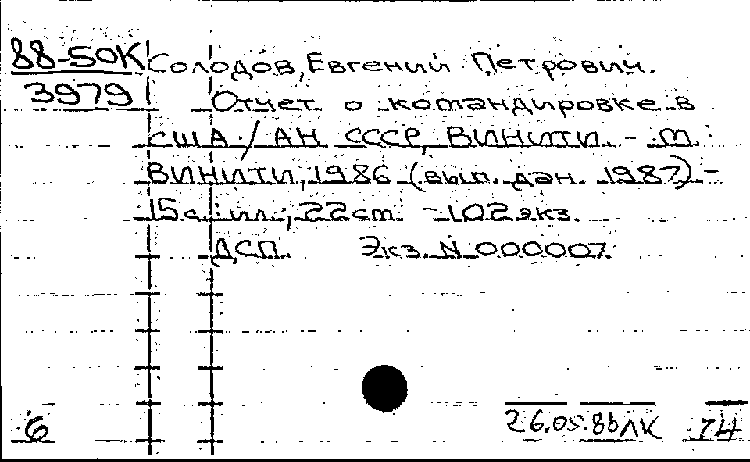 88-50К Солодов, Евгений Петрович.
3979 Отчет о командировке в
США / АН СССР, ВИНИТИ. - М.:
ВИНИТИ, 1986 (вып. дан. 1987) -
15с.: ил.; 22см. - 102экз.
ДСП. Экз. N 000007.
6 26.05.88 ЛК 74